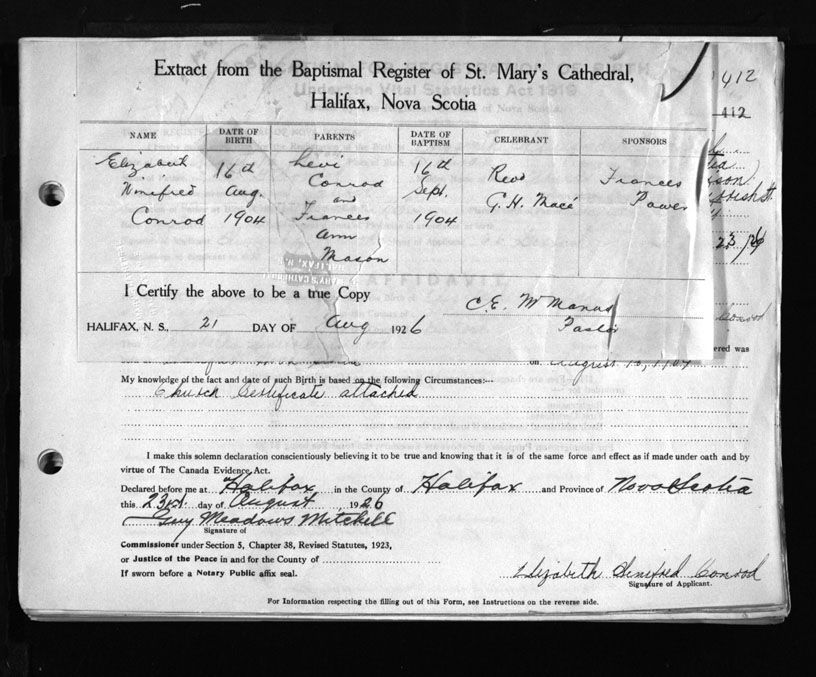 Extract from the Baptismal Register of St. Mary's Cathedral,
Halifax, Nova Scotia
412
412
NAME DATE OF BIRTH PARENTS DATE OF BAPTISM CELEBRANT SPONSORS
Elizabeth 16th Levi 16th Revd Frances
Winifred Aug. Conrod Sept. G. H. Macé Power
Conrod 1904 and 1904
Frances
Ann
Mason
I Certify the above to be a true Copy
C. E. McManus
HALIFAX, N. S., 21 DAY OF Aug 1926 Pastor
ered was
on August 16, 1904
My knowledge of the fact and date of such Birth is based on the following Circumstances:—
Church Certificate attached
I make this solemn declaration conscientiously believing it to be true and knowing that it is of the same force and effect as if made under oath and by
virtue of The Canada Evidence Act.
Declared before me at Halifax in the County of Halifax and Province of Nova Scotia
this 23rd day of August 1926
Guy Meadows Mitchell
Signature of
Commissioner under Section 5, Chapter 38, Revised Statutes, 1923,
or Justice of the Peace in and for the County of
If sworn before a Notary Public affix seal.
Elizabeth Winifred Conrod
Signature of Applicant.
For Information respecting the filling out of this Form, see Instructions on the reverse side.